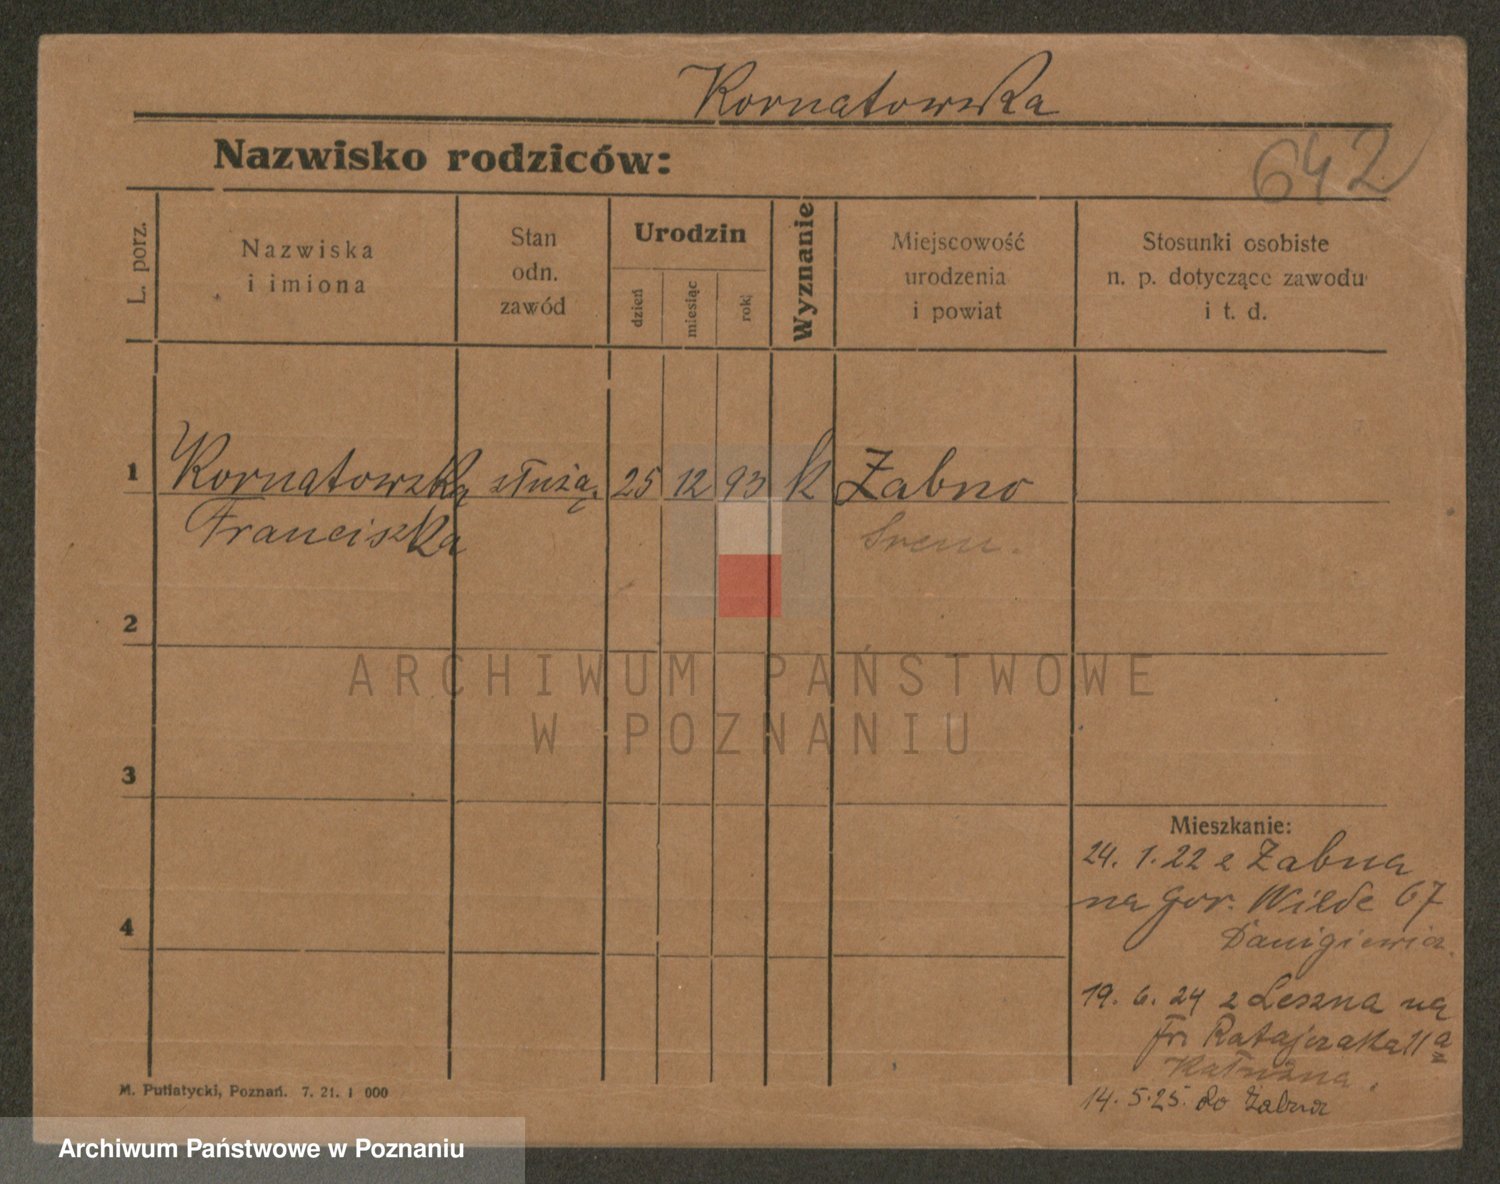 Kornatowska
642
Nazwisko rodziców:
L. porz.
Nazwiska
i imiona
Stan
odn.
zawód
Urodzin
dzień
miesiąc
rok
Wyznanie
Miejscowość
urodzenia
i powiat
Stosunki osobiste
n. p. dotyczące zawodu
i t. d.
1 Kornatowska służą. 25 12 93 k Żabno
Franciszka Śrem.
2
ARCHIWUM PAŃSTWOWE
W POZNANIU
3
Mieszkanie:
24. 1. 22 z Żabna
na gór. Wilde 67
4
19. 6. 24 z Leszna na
Fr. Ratajczaka 11a
14. 5. 25. do Żabna
M. Putiatycki, Poznań. 7. 21. 1 000
Archiwum Państwowe w Poznaniu